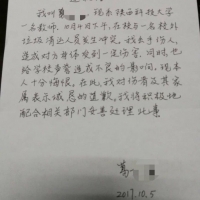 我叫葛 现系陕西科技大学
一名教师，10月4日下午，在校与一名校外
垃圾清运人员发生冲突，我失手伤人，
造成对方身体受到一定伤害，同时也
给学校声誉造成不良的影响，现本
人十分悔恨。在此，我对伤者及其家
属表示诚恳的道歉。我将积极地
配合相关部门妥善处理此事
葛
2017.10.5